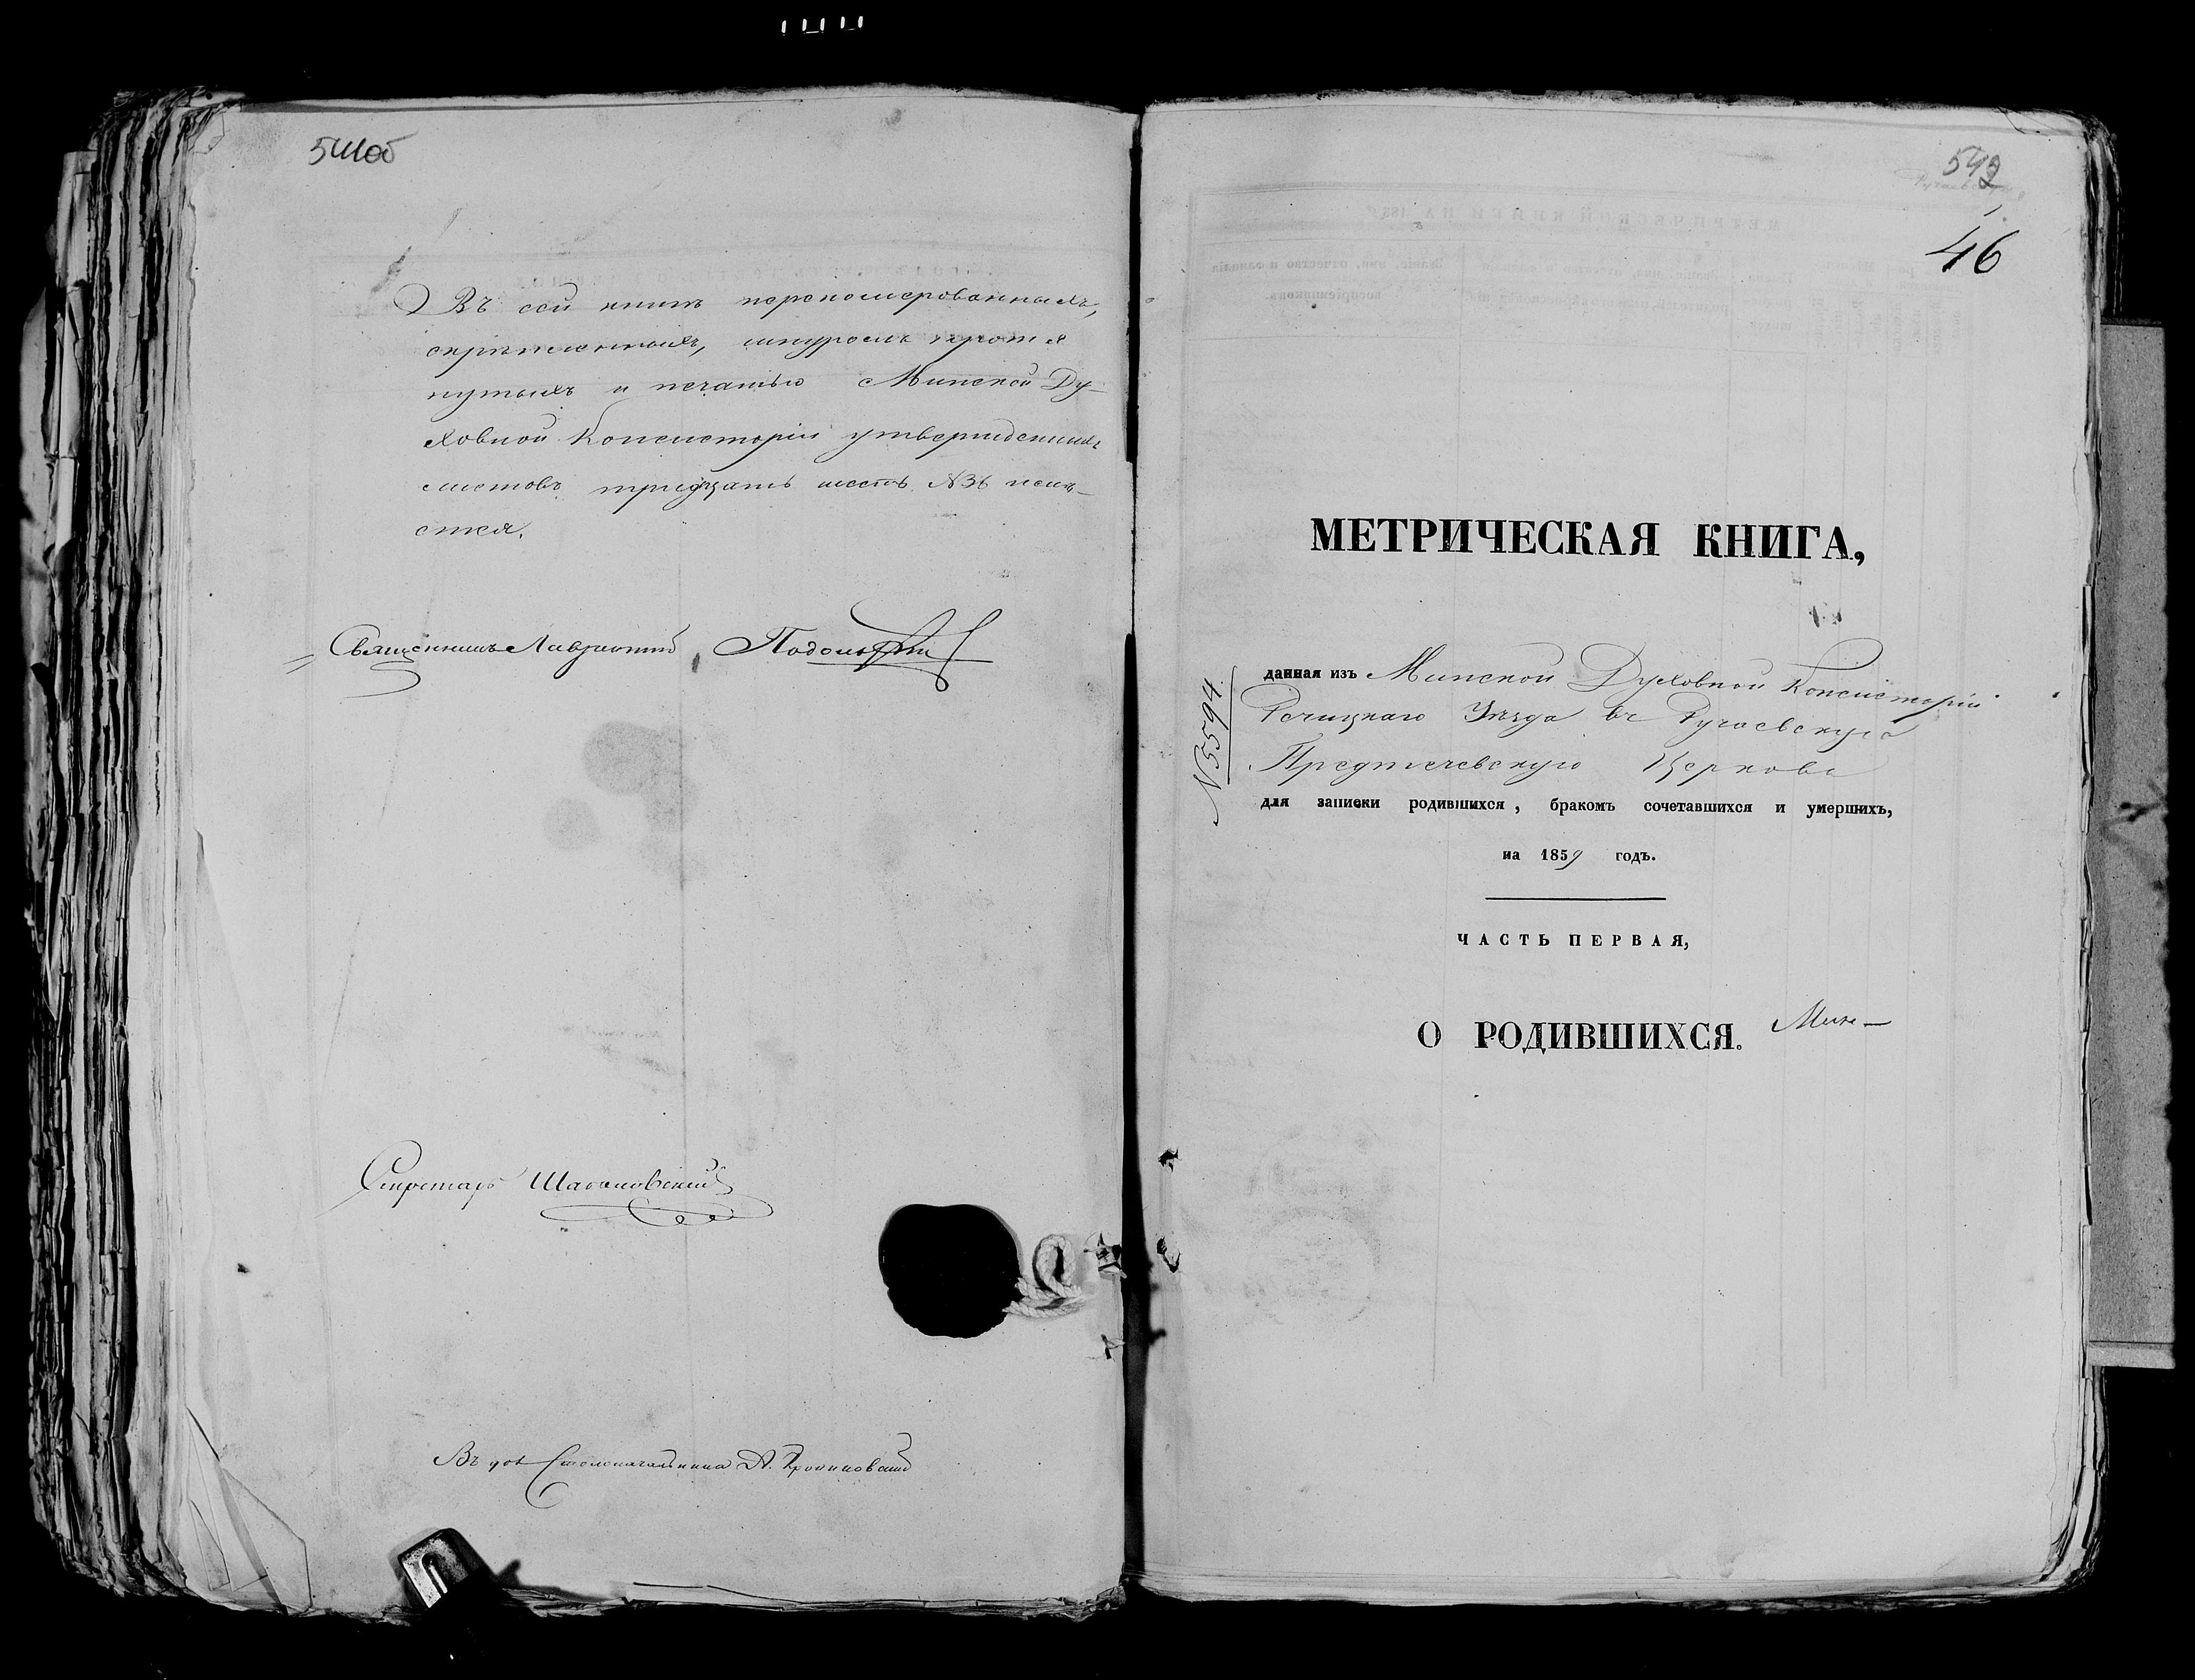 541об
Въ сей книгѣ переномерованныхъ,
скрѣпленныхъ, шнуромъ протя
нутыхъ и печатью Минской Ду-
ховной Консисторіи утвержденныхъ
листовъ тридцать шесть №36 имѣ-
ется.
Священникъ Лаврентій
Секретарь
Въ дол Столоначальника А.
542
46
МЕТРИЧЕСКАЯ КНИГА,
данная изъ Минской Духовной Консисторіи
Речицкаго Уѣзда въ Ручаевскую
Предтечевскую Церковь
для записки родившихся, бракомъ сочетавшихся и умершихъ,
на 1859 годъ.
ЧАСТЬ ПЕРВАЯ,
О РОДИВШИХСЯ.
№5594